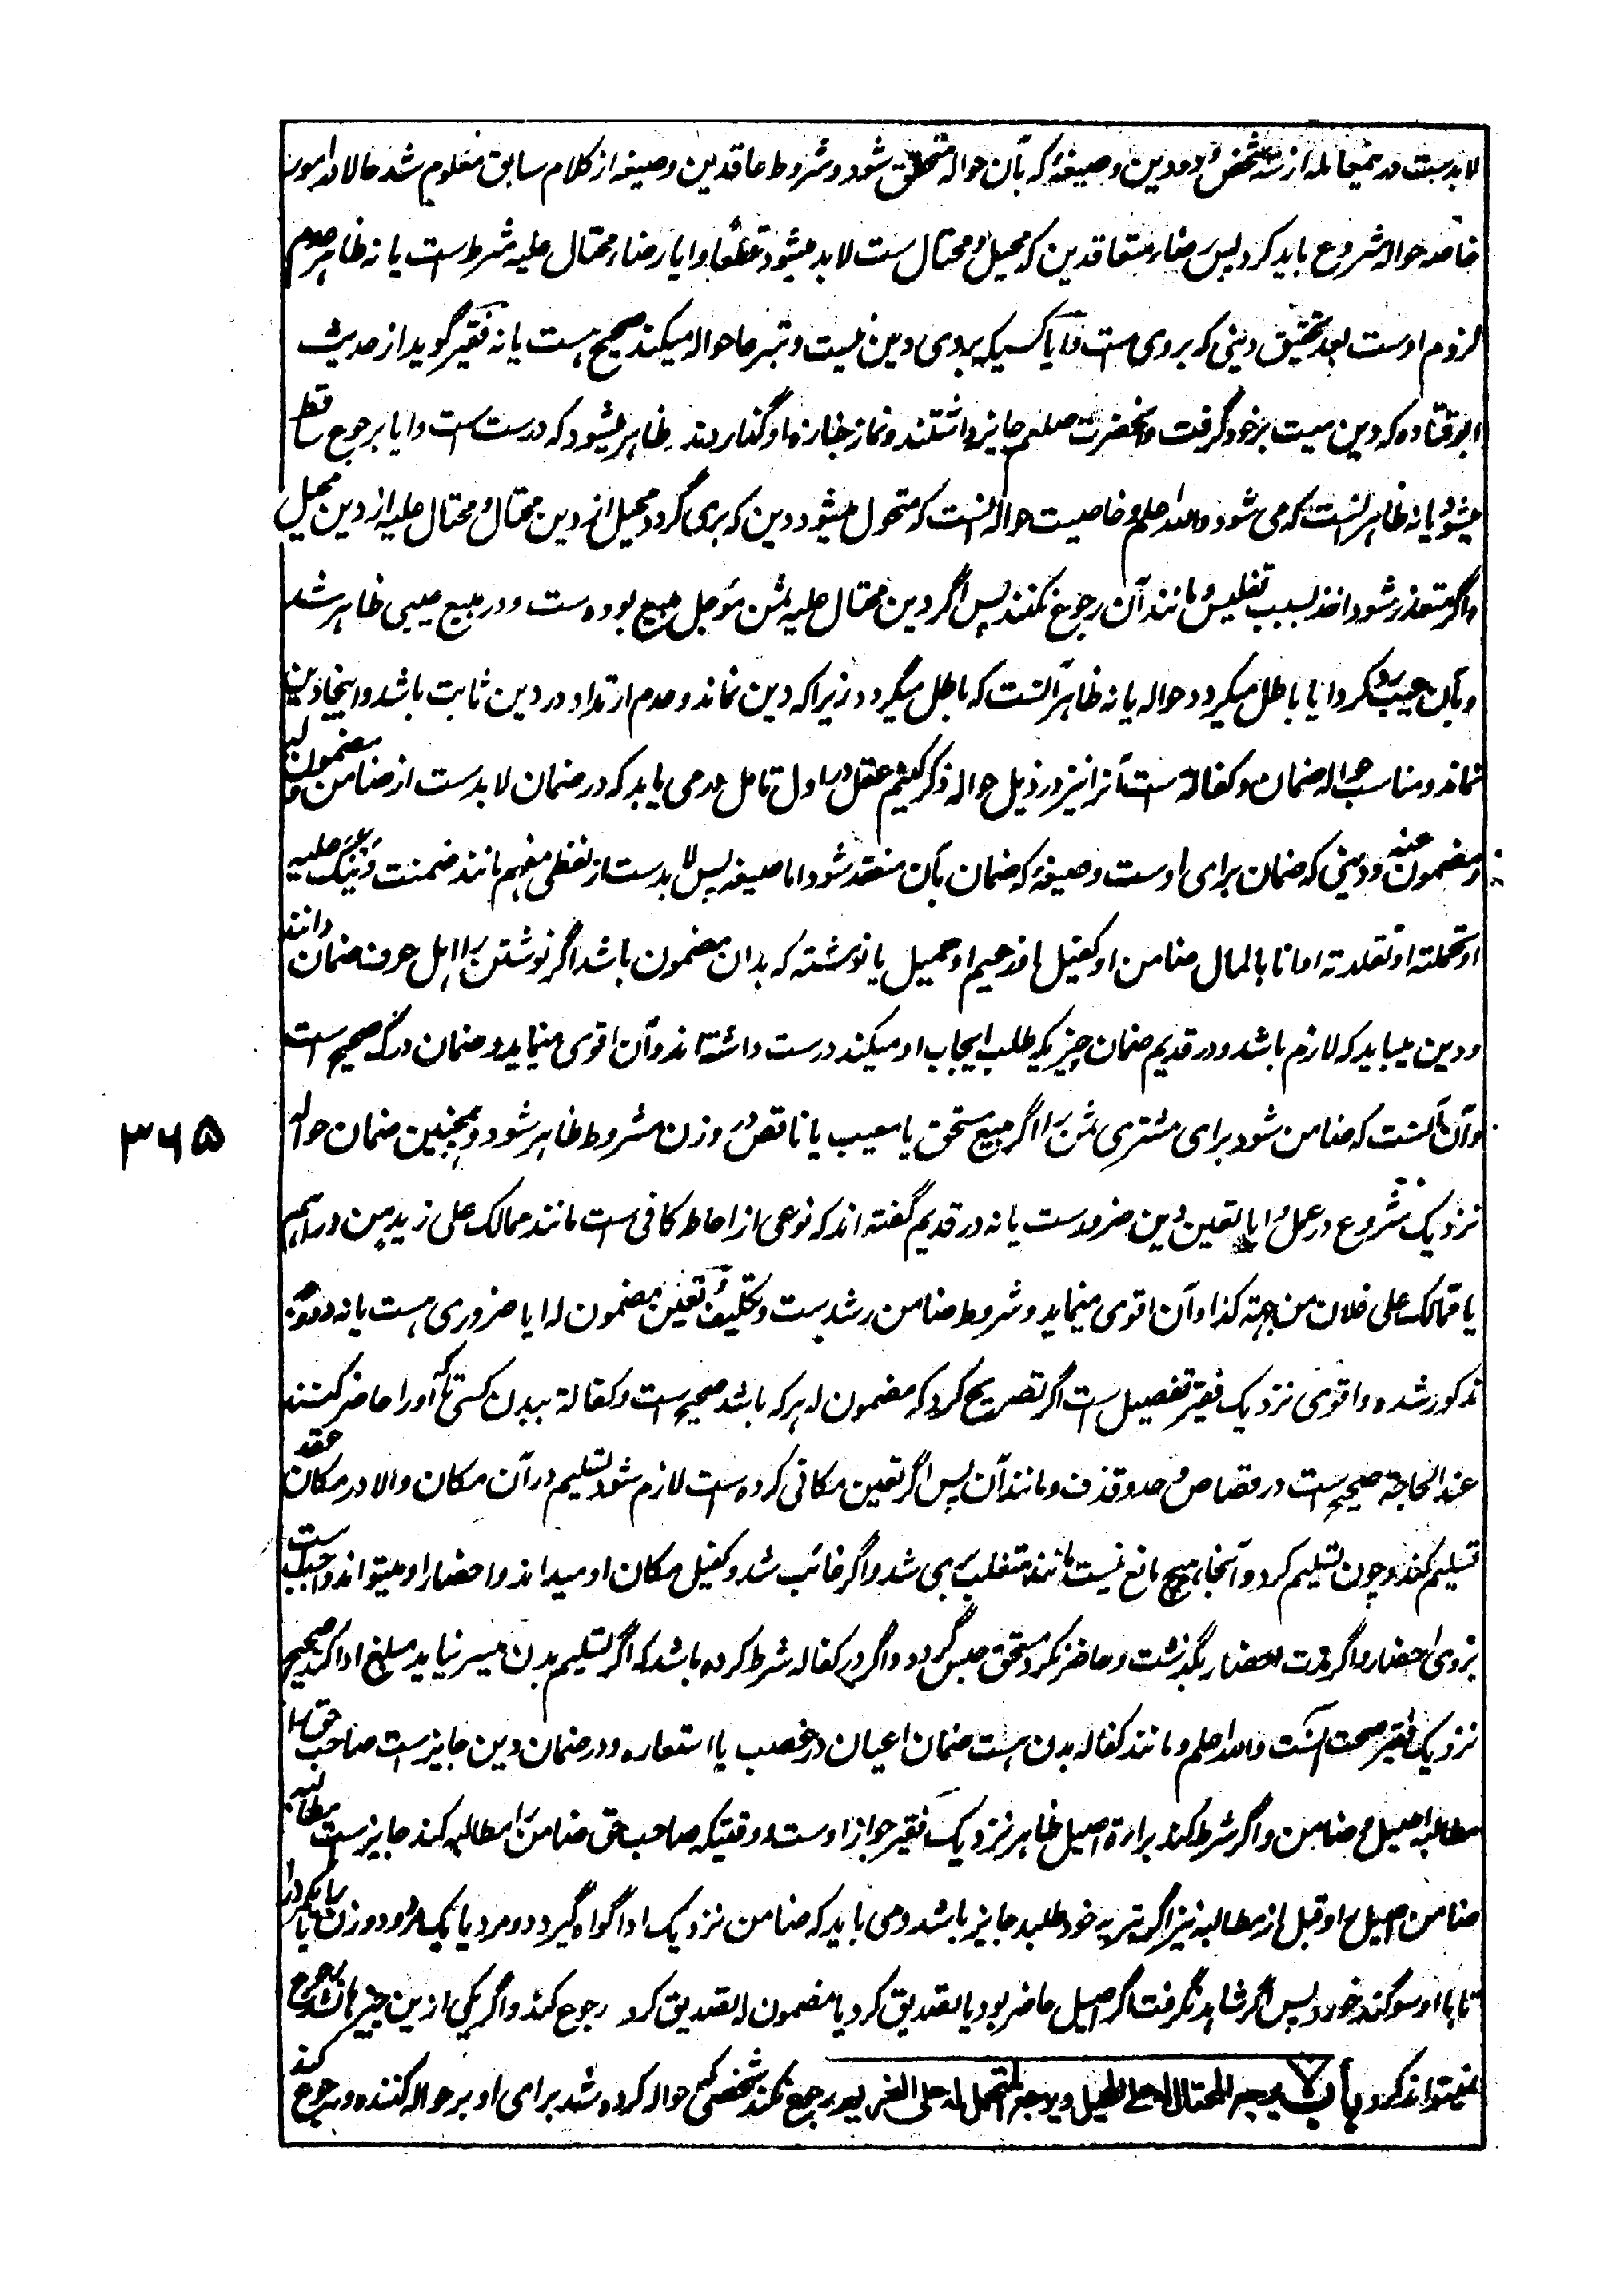 لابدست در نیمعامله از سه شخص و دو دین و صیغه که بآن حواله متحقق شود و شروط عاقدین و صیغه از کلام سابق معلوم شد حالا در امور
خاصه حواله شروع باید کرد پس رضاء متعاقدین که محیل و محتال ست لابد میشود قطعا و ایا رضاء محتال علیه شرط است یا نه ظاهر عدم
لزوم اوست بعد تحقیق دینی که بروی ست و ایا کسیکه بروی دین نیست و تبرعا حواله میکند صحیح هست یا نه فقیر گوید از حدیث
ابو قتاده که دین میت بر خود گرفت و آنحضرت صلعم جایز داشتند و نماز جنازه او گذاردند ظاهر میشود که درست است و ایا برجوع ساقط
میشود یا نه ظاهر آنست که می شود والله اعلم و خاصیت حواله آنست که متحول میشود دین که بری گردد محیل از دین محتال و محتال علیه از دین محیل
و اگر متعذر شود اخذ بسبب تفلیس و مانند آن رجوع نکنند پس اگر دین محتال علیه ثمن مؤجل مبیع بوده ست و در مبیع عیبی ظاهر شد
و بآن عیب رد کرد ایا باطل میگردد حواله یا نه ظاهر آنست که باطل میگردد زیراکه دین نماند و عدم ارتداد در دین ثابت باشد و اینجا دین
نماند و مناسب حواله ضمان و کفالة ست آنرا نیز در ذیل حواله ذکر کنیم عقل در اول تامل در می یابد که در ضمان لابدست از ضامن و مضمون له
و مضمون عنه و دینی که ضمان برای اوست و صیغه که ضمان بآن منعقد شود اما صیغه پس لابدست از لفظی مفهم مانند ضمنت دینک علیه
او تحملته او تقلدته او انا بالمال ضامن او کفیل او زعیم او حمیل یا نوشته که بدان مضمون باشد اگر نوشتن را اهل عرف ضمان دانند
و دین میباید که لازم باشد و در قدیم ضمان چیزیکه طلب ایجاب او میکند درست داشته اند و آن اقوی مینماید و ضمان درک صحیح ست
و آن آنست که ضامن شود برای مشتری ثمن را اگر مبیع مستحق یا معیب یا ناقص در وزن مشروط ظاهر شود و همچنین ضمان حواله
نزدیک شروع در عمل و ایا تعین دین ضروست یا نه در قدیم گفته اند که نوعی از احاطه کافی ست مانند ممالک علی زید من دراهم
یا ممالک علی فلان من جهته کذا و آن اقوی مینماید و شروط ضامن رشدست و تکلیف و تعین مضمون له ایا ضروری هست یا نه دو قول
مذکور شده و اقوی نزدیک فقیر تفصیل ست اگر تصریح کرد که مضمون له هرکه باشد صحیح ست و کفالة ببدن کسی تا که آورا حاضر کنند
عند الحاجة صحیح ست در قصاص و حد و قذف و مانند آن پس اگر تعین مکانی کرده ست لازم شود تسلیم در آن مکان والا در مکان عقد
تسلیم کند و چون تسلیم کرد و آنجا هیچ مانع نیست مانند متغلب بری شد و اگر غائب شد و کفیل مکان او میداند و احضار او میتواند واجب ست
بروی احضار و اگر مدت احضار بگذشت و حاضر نکرد مستحق حبس گردد و اگر در کفاله شرط کرده باشد که اگر تسلیم بدن میسر نیاید مبلغ ادا کند صحیح
نزدیک فقیر صحت آنست والله اعلم و مانند کفاله بدن هست ضمان اعیان در غصب یا استعاره و در ضمان دین جایز ست صاحب حق را
مطالبه اصیل و ضامن و اگر شرط کند براءة اصیل ظاهر نزدیک فقیر جواز اوست و وقتیکه صاحب حق ضامن را مطالبه کند جایز ست مطالبه
ضامن اصیل را و قبل از مطالبه نیز اگر تبریه خود طلبد جایز باشد و می باید که ضامن نزدیک ادا گواه گیرد دو مرد یا یک مرد و دو زن یا یکمرد را
تا با او سوگند خورد پس اگر شاهد نگرفت اگر اصیل حاضر بود یا تصدیق کرد یا مضمون له تصدیق کرد رجوع کند و اگر یکی ازین چیزها نشد رجوع
نمیتواند کرد باب لا یرجع المحتال له علی المحیل و یرجع المتحمل له علی الغریم رجوع نکند شخصی که حواله کرده شد برای او بر حواله کننده و رجوع کند
۳۶۵